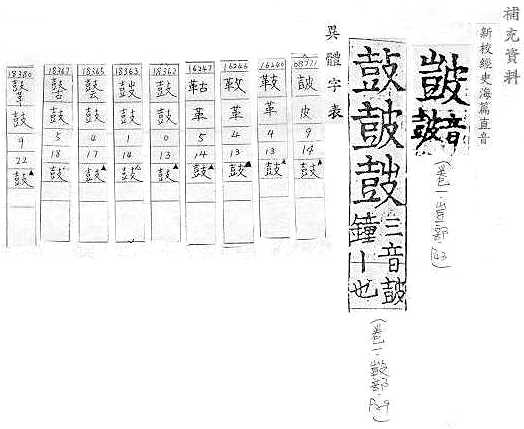 補充資料
新校經史海篇直音
音鼓
(卷一.豈部.P.43)
鼔皷
三音皷
鐘十也
(卷一.鼓部.P.9)
異體字表
皮 9 14 鼓▲
16240 革 4 13 鼓▲
16246 革 4 13 鼓▲
16247 鞊 革 5 14 鼓▲
18362 鼓 鼓 0 13 鼓▲
18363 鼓 1 14 鼓▲
18365 鼓 4 17 鼓▲
18367 鼓 5 18 鼓▲
18380 鼓 9 22 鼓▲